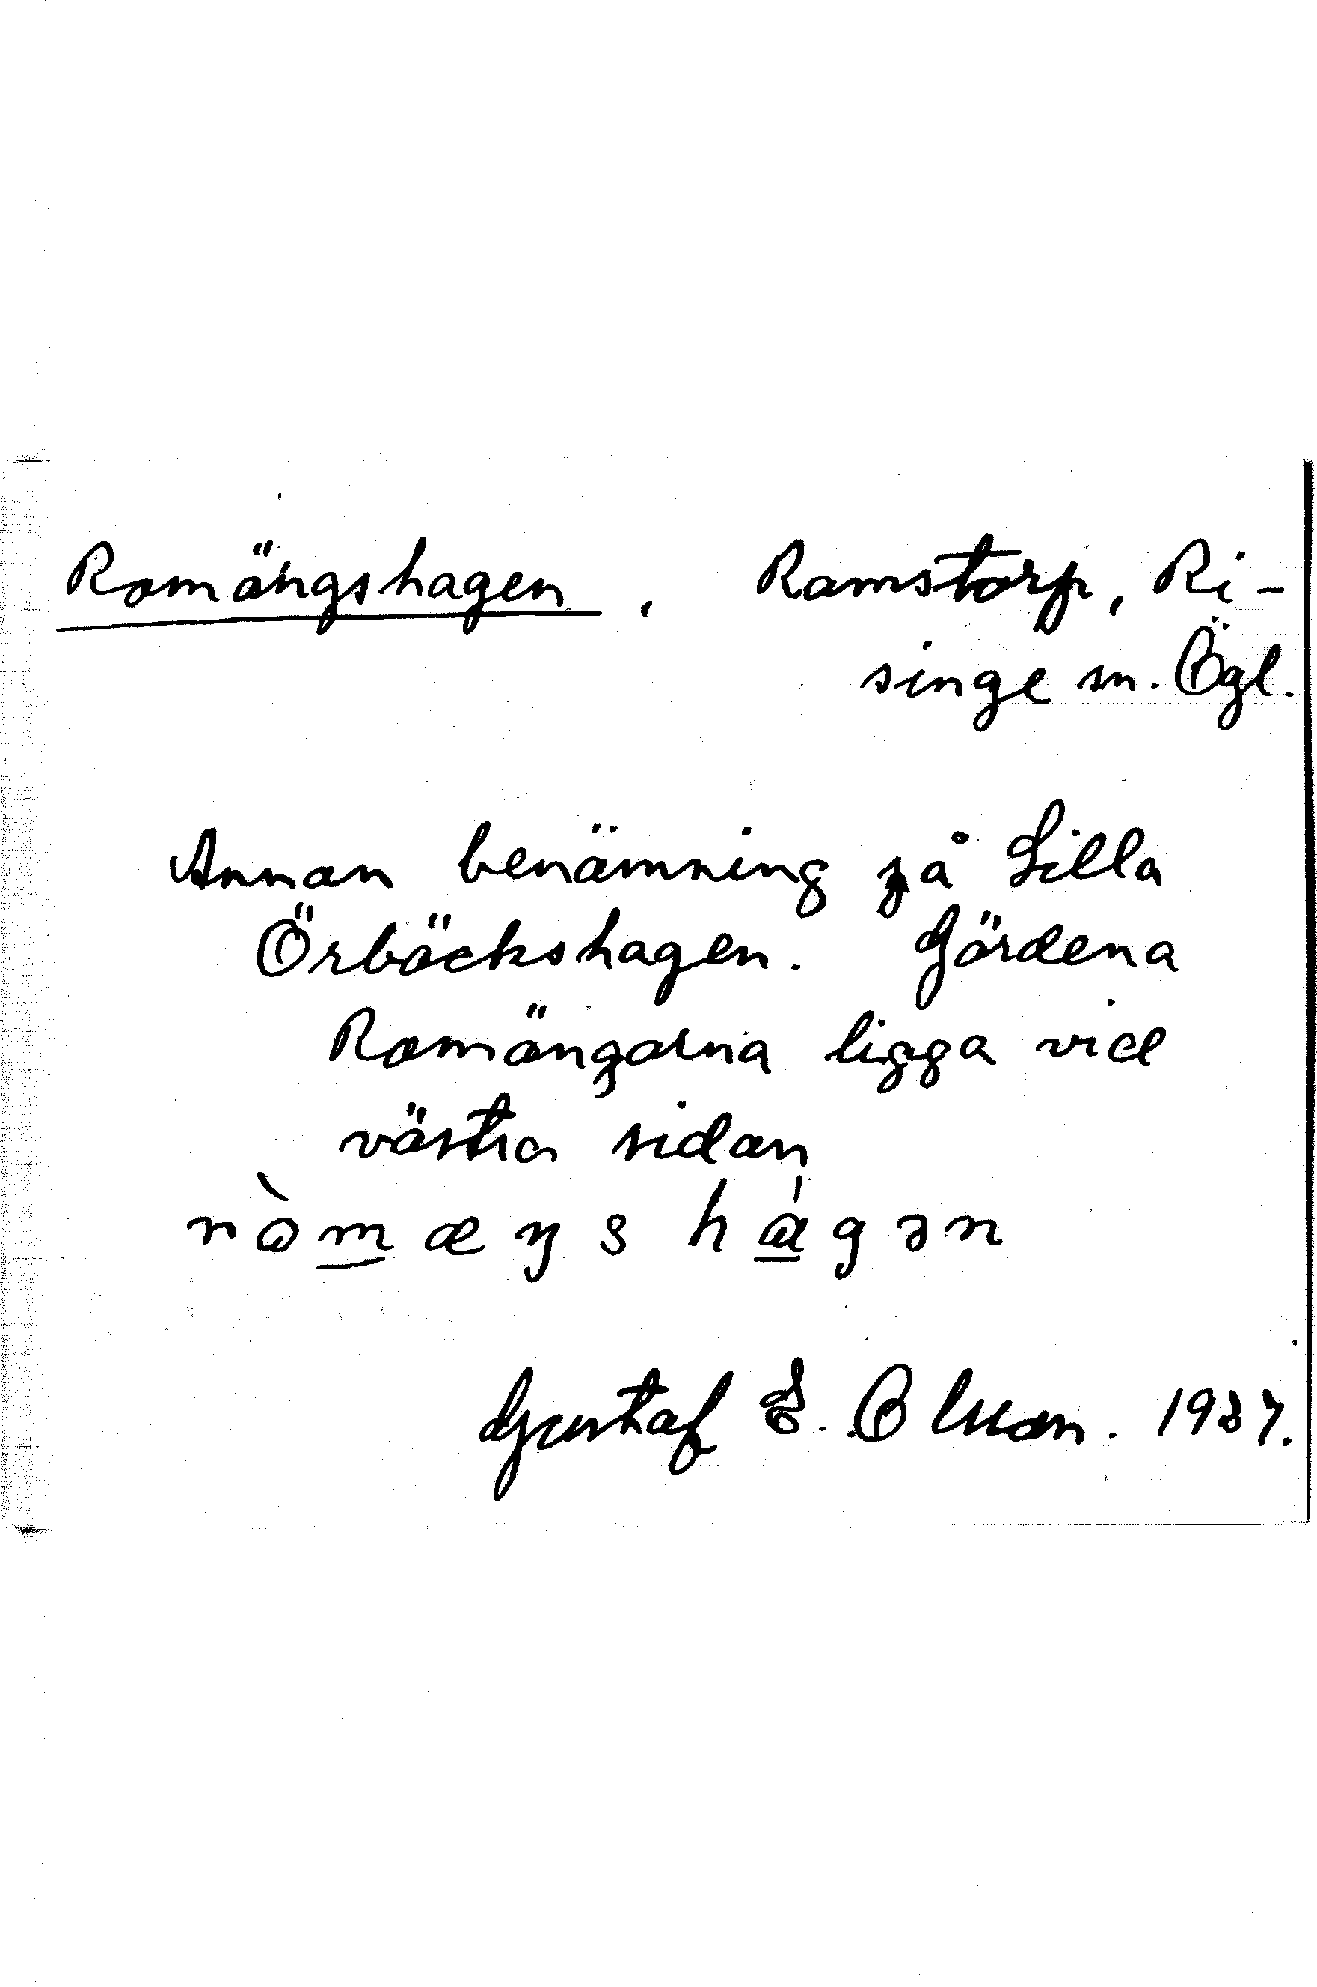 Romängshagen, Ramstorp, Ri-
singe sn. Ögl.
Annan benämning på Lilla
Örbäckshagen. Gärdena
Romängarna ligga vid
västra sidan
ròmæŋs hágən
Gustaf E. Olsson. 1937.